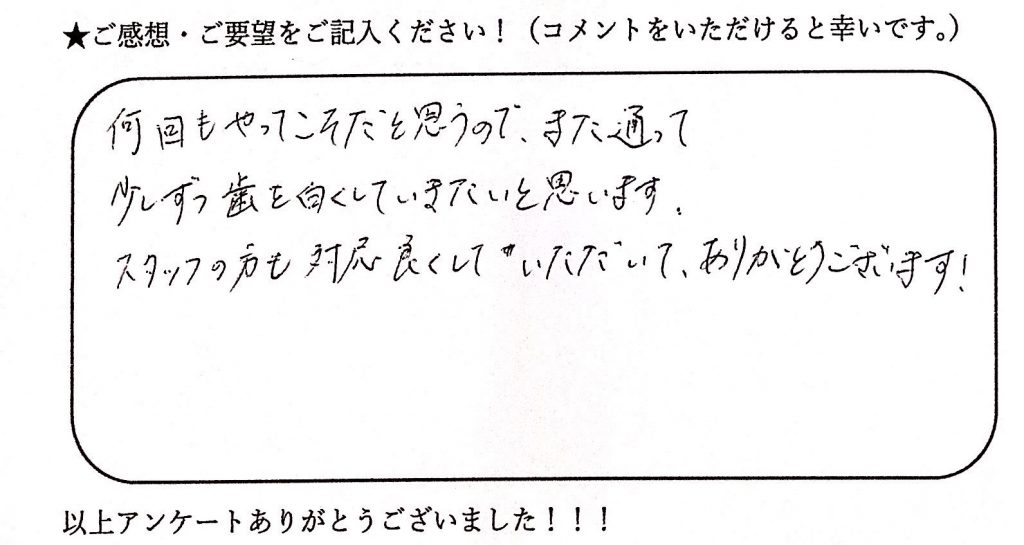 ★ご感想・ご要望をご記入ください！（コメントをいただけると幸いです。）
何回もやってこそだと思うので、また通って
少しずつ歯を白くしていきたいと思います。
スタッフの方も対応良くしていただいて、ありがとうございます！
以上アンケートありがとうございました！！！